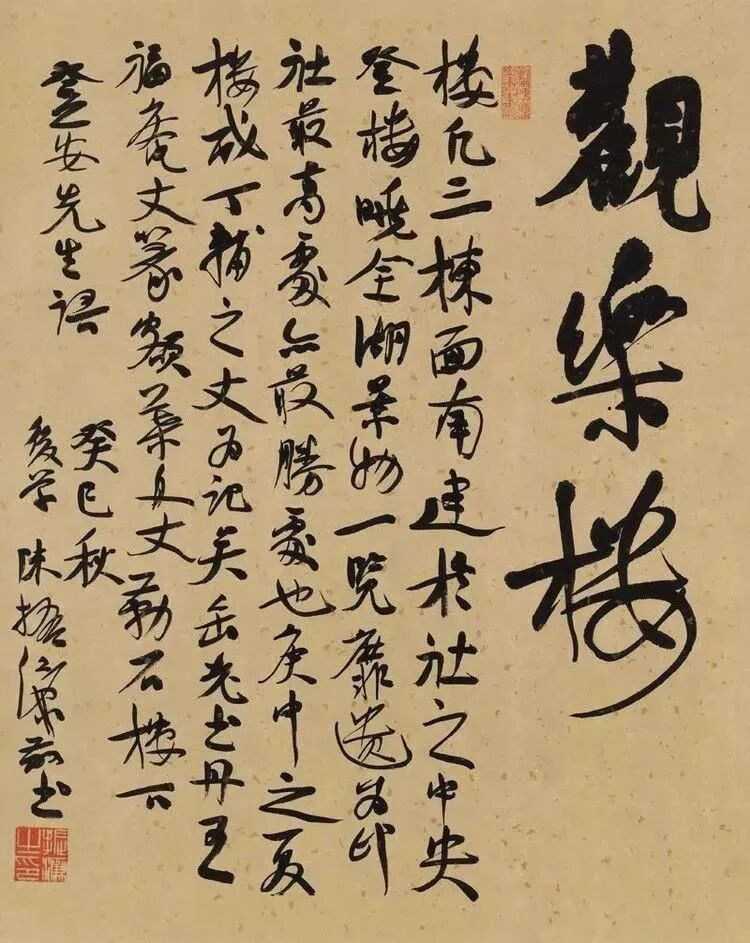 觀樂樓
樓凡三棟面南建於社之中央
登樓曉全湖景物一覽靡遺为印
社最高處亦最勝處也庚申之夏
樓成丁輔之丈为记吴缶老书丹王
福庵丈篆额葉舟丈勒石樓下
登安先生語
癸巳秋
後学 陈振濂书